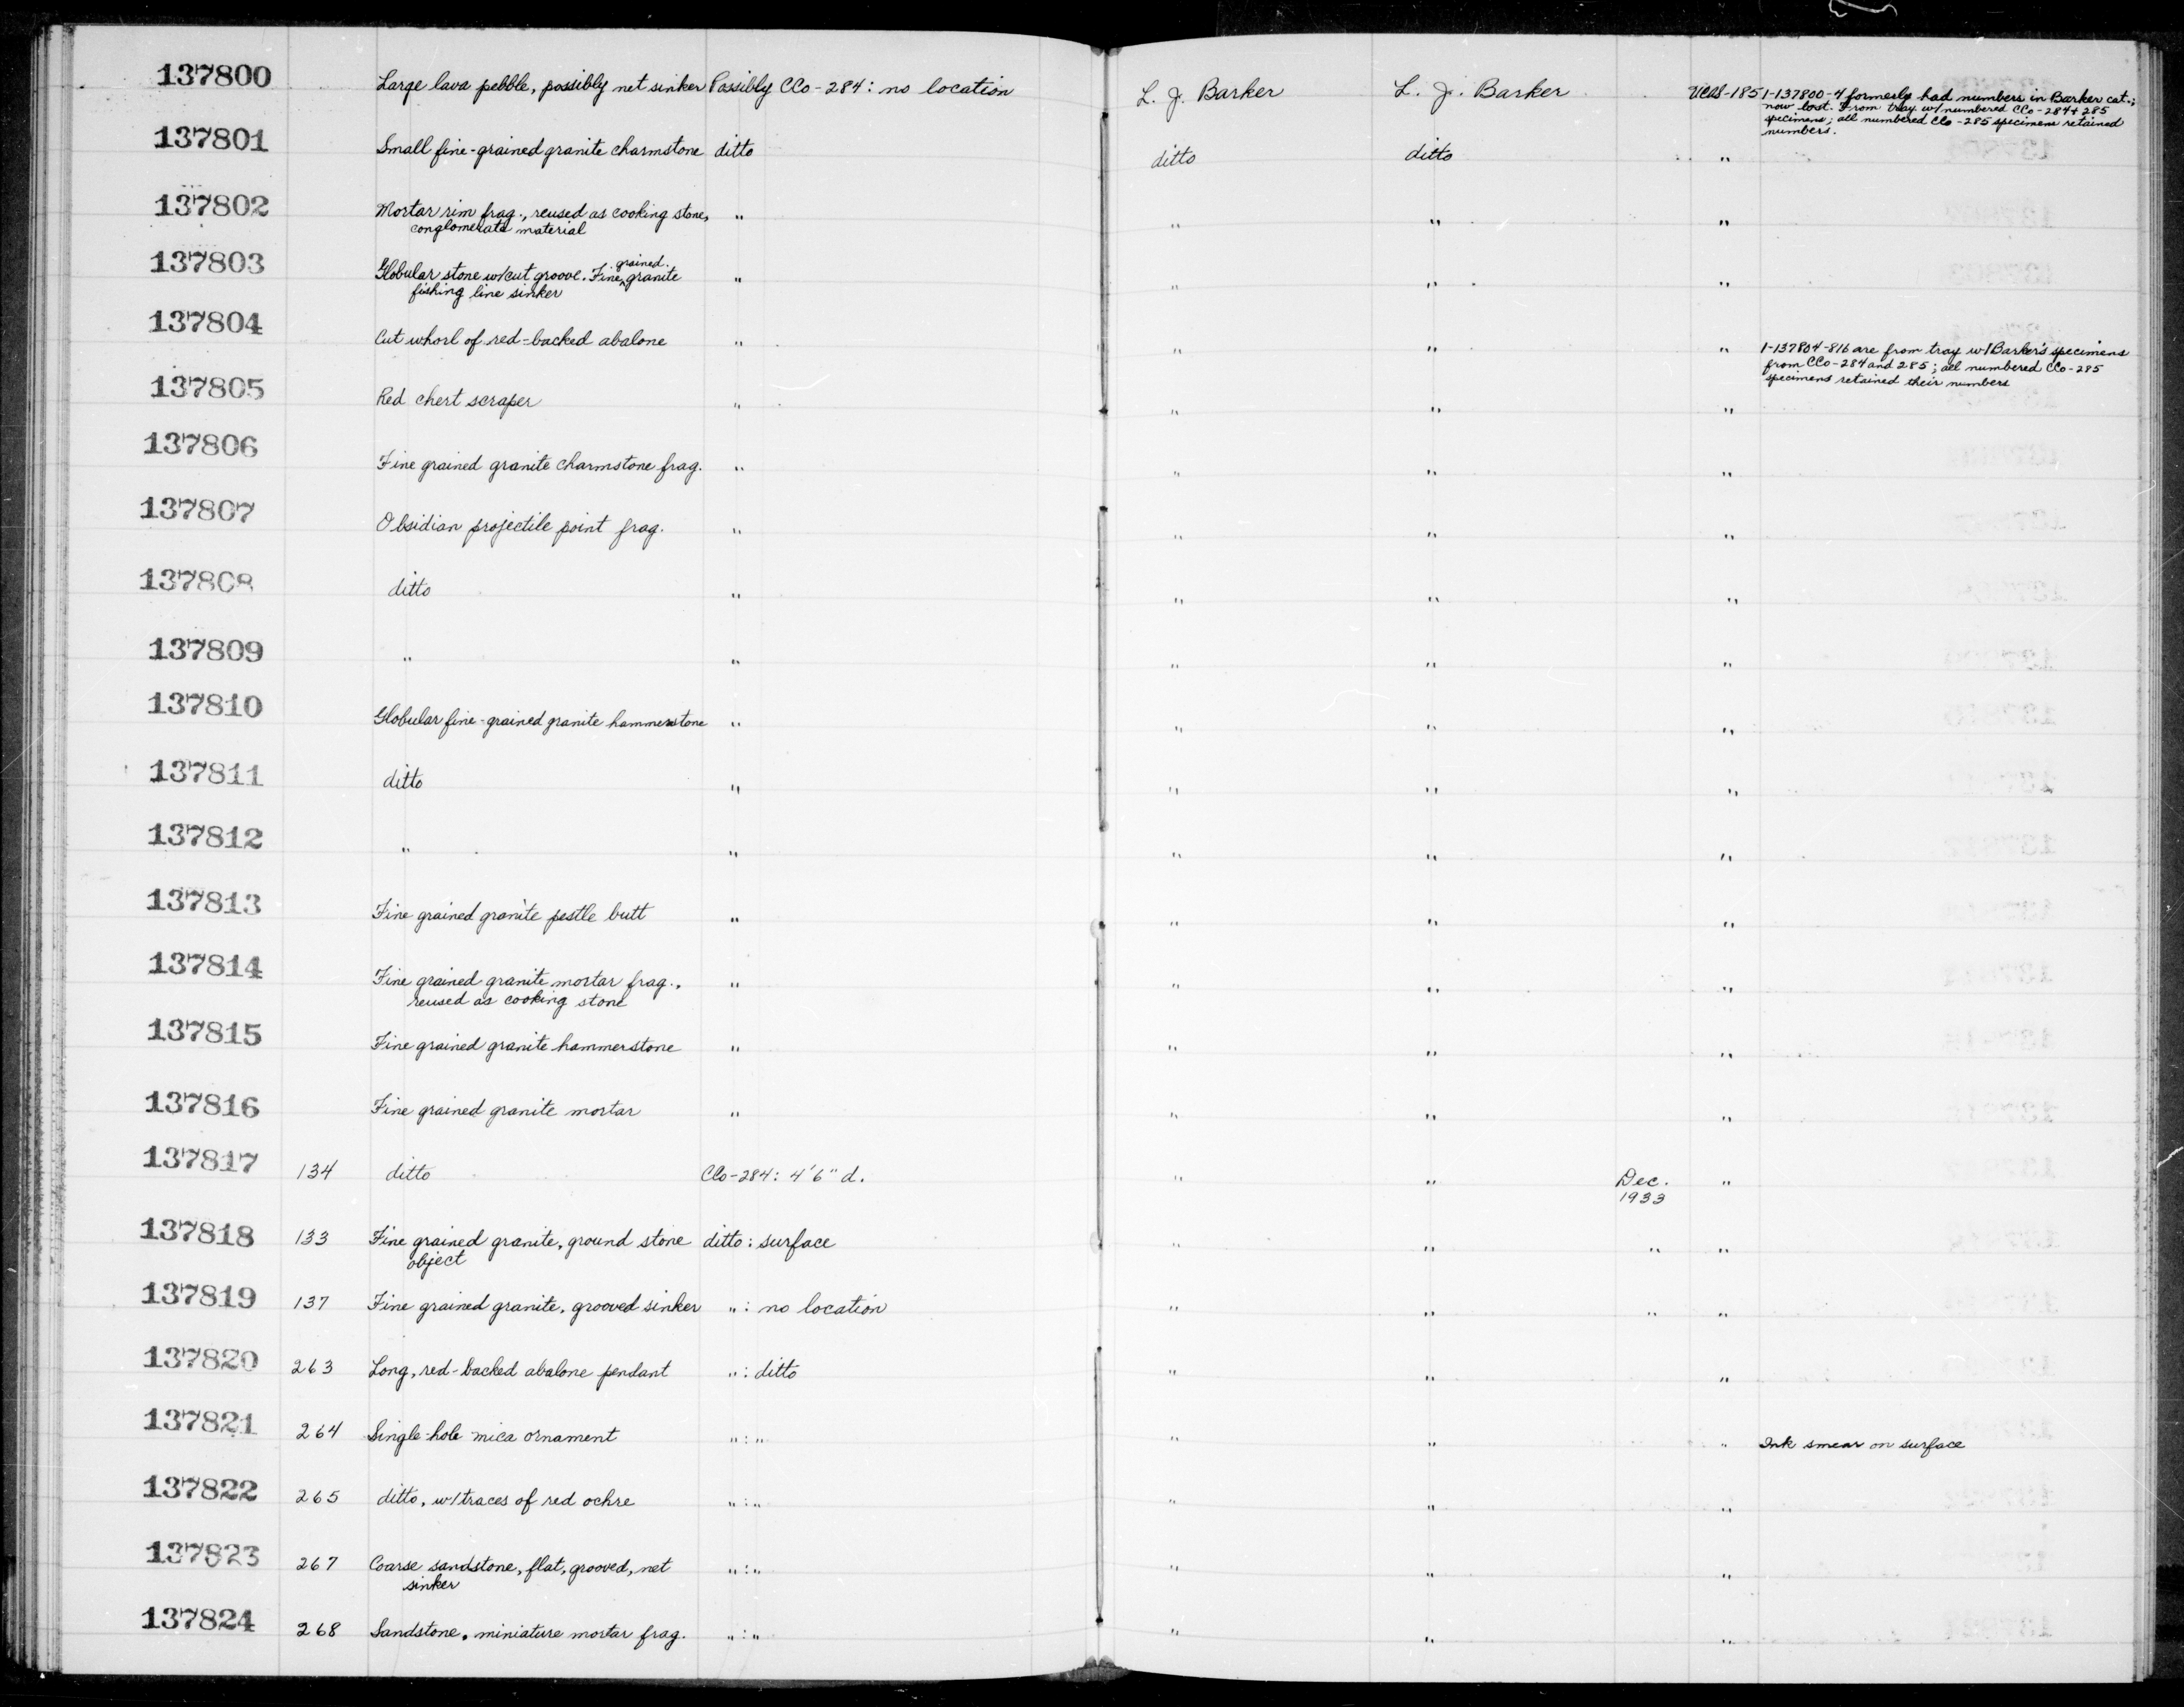 137800 Large lava pebble, possibly net sinker Possibly CCo-284: no location L. J. Barker L. J. Barker UCAS-185 1-137800-4 formerly had numbers in Barker cat.;
now lost. From tray w/ numbered CCo-284 + 285
specimens; all numbered CCo-285 specimens retained
numbers.
137801 Small fine-grained granite charmstone ditto ditto ditto "
137802 Mortar rim frag., reused as cooking stone, " " " "
conglomerate material
137803 Globular stone w/cut groove. Fine grained granite " " " "
fishing line sinker
137804 Cut whorl of red-backed abalone " " " " 1-137804-816 are from tray w/Barker's specimens
from CCo-284 and 285; all numbered CCo-285
specimens retained their numbers
137805 Red chert scraper " " " "
137806 Fine grained granite charmstone frag. " " " "
137807 Obsidian projectile point frag. " " " "
137808 ditto " " " "
137809 " " " " "
137810 Globular fine-grained granite hammerstone " " " "
137811 ditto " " " "
137812 " " " " "
137813 Fine grained granite pestle butt " " " "
137814 Fine grained granite mortar frag., " " " "
reused as cooking stone
137815 Fine grained granite hammerstone " " " "
137816 Fine grained granite mortar " " " "
137817 134 ditto CCo-284: 4'6" d. " " Dec. "
1933
137818 133 Fine grained granite, ground stone ditto: surface " " " "
object
137819 137 Fine grained granite, grooved sinker ": no location " " " "
137820 263 Long, red-backed abalone pendant ": ditto " " "
137821 264 Single-hole mica ornament ": " " " " Ink smear on surface
137822 265 ditto, w/traces of red ochre ": " " "
137823 267 Coarse sandstone, flat, grooved, net ": " " " "
sinker
137824 268 Sandstone, miniature mortar frag. ": " " " "